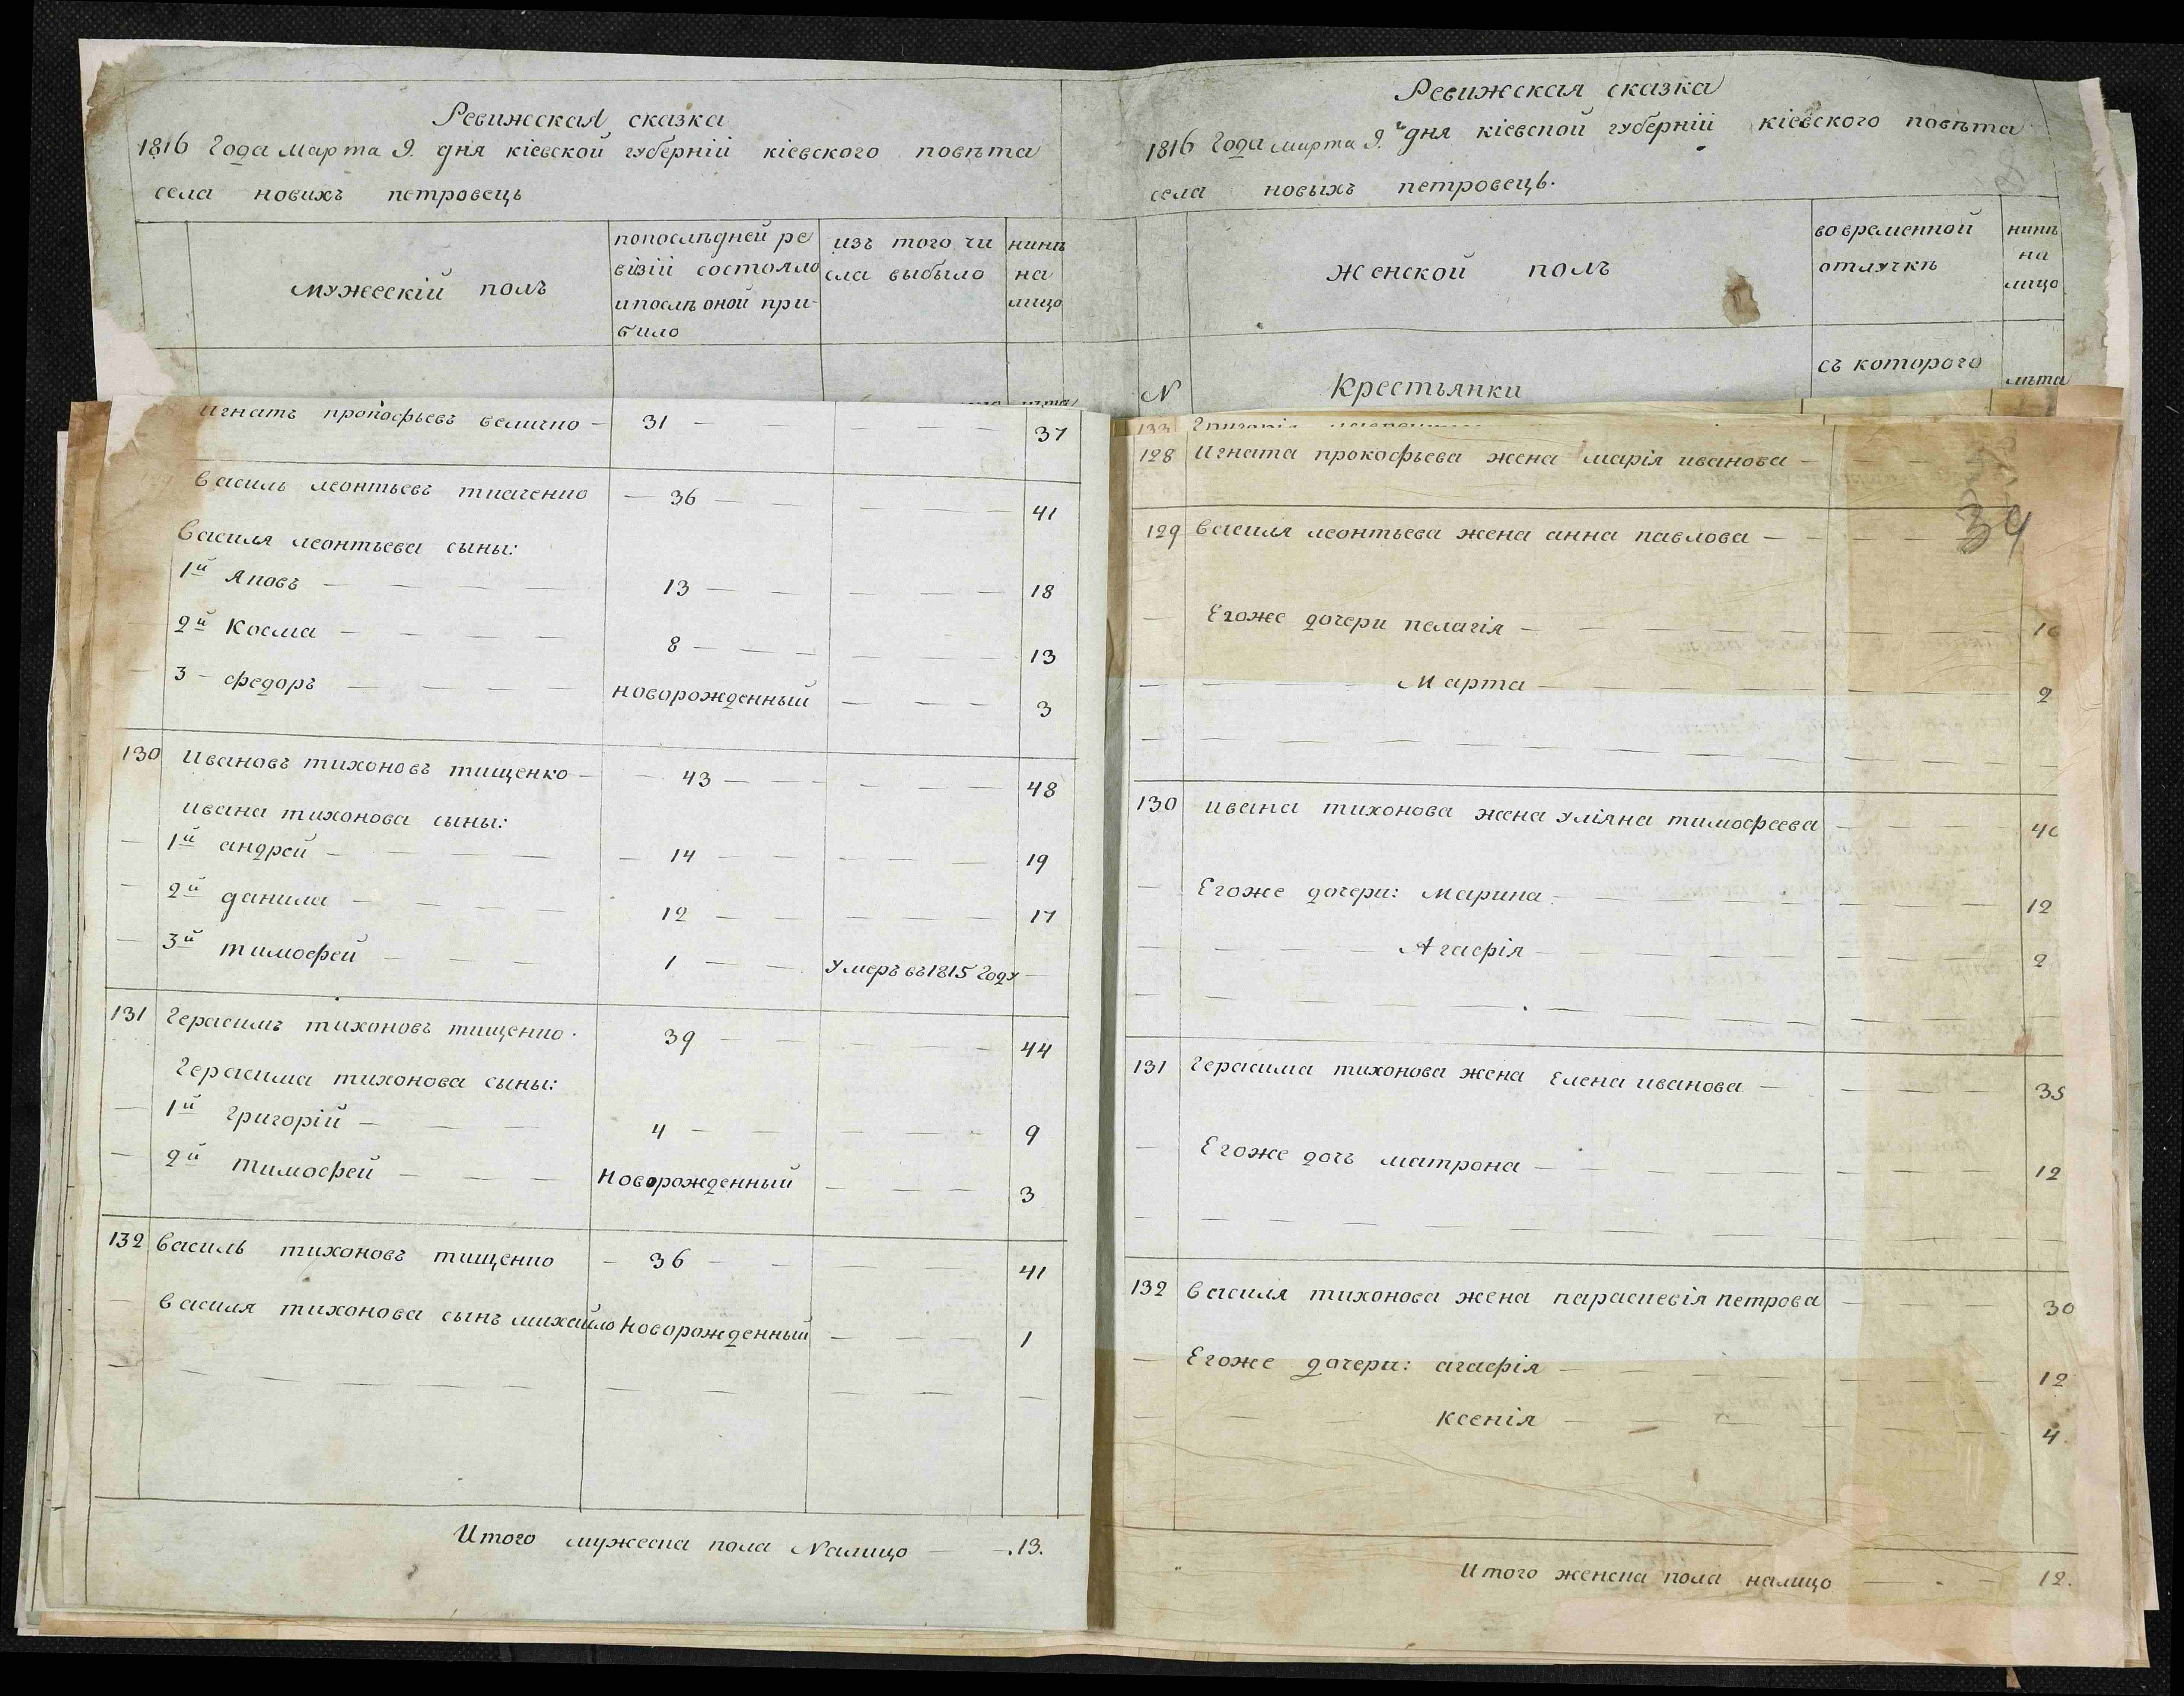 Ревижская сказка
1816 Года марта 9. дня кіевской губерніи кіевского повѣта
села новихъ петровець
мужескій полъ
попослѣдней ре
візіи состояло
ипослѣ оной при-
было
изъ того чи
сла выбыло
нинѣ
на
лицо
игнатъ прокофьевъ величко - 31 - 37
василь леонтьевъ ткаченко - 36 - 41
василя леонтьева сыны:
1й Яковъ - 13 - 18
2й Косма - 8 - 13
3 - федоръ - новорожденный - 3
130 Ивановъ тихоновъ тищенко - 43 - 48
ивана тихонова сыны:
1й андрей - 14 - 19
2й данила - 12 - 17
3й тимофей - 1 - умеръ въ 1815 году -
131 Герасимъ тихоновъ тищенко. 39 - 44
Герасима тихонова сыны:
1й григорій - 4 - 9
2й тимофей - Новорожденный - 3
132 василь тихоновъ тищенко - 36 - 41
василя тихонова сынъ михайло новорожденный - 1
Итого мужеска пола налицо - .13.
Ревижская сказка
1816 Года марта 9.ъ дня кіевской губерніи кіевского повѣта
села новыхъ петровець.
женской полъ
вовременной
отлучкѣ
нинѣ
на
лицо
N Крестьянки
съ которого
лѣта
133 Григорія
128 Игната прокофьева жена марія иванова -
34
129 василя леонтьева жена анна павлова -
Егоже дочери пелагія - 16
Марта - 2
130 ивана тихонова жена уліяна тимофеева - 40
Егоже дочери: Марина - 12
Агафія - 2
131 Герасима тихонова жена Елена иванова - 35
Егоже дочь матрона - 12
132 василя тихонова жена параскевія петрова - 30
Егоже дочери: агафія - 12
ксенія - 4.
Итого женска пола налицо - 12.